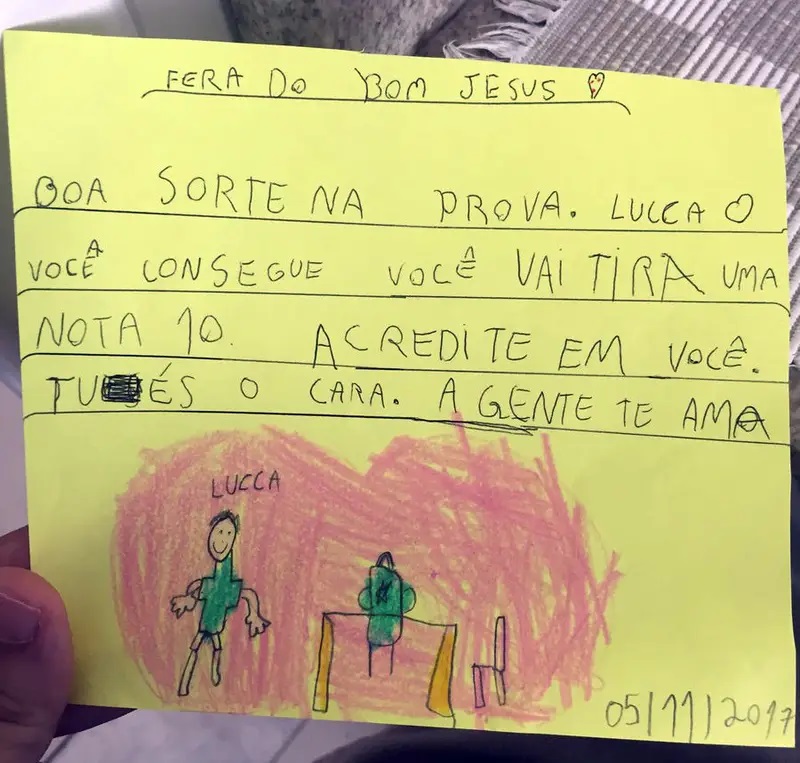 FERA DO BOM JESUS
BOA SORTE NA PROVA. LUCCA
VOCÊ CONSEGUE VOCÊ VAI TIRA UMA
NOTA 10. ACREDITE EM VOCÊ.
TU ÉS O CARA. A GENTE TE AMA
LUCCA
05/11/2017